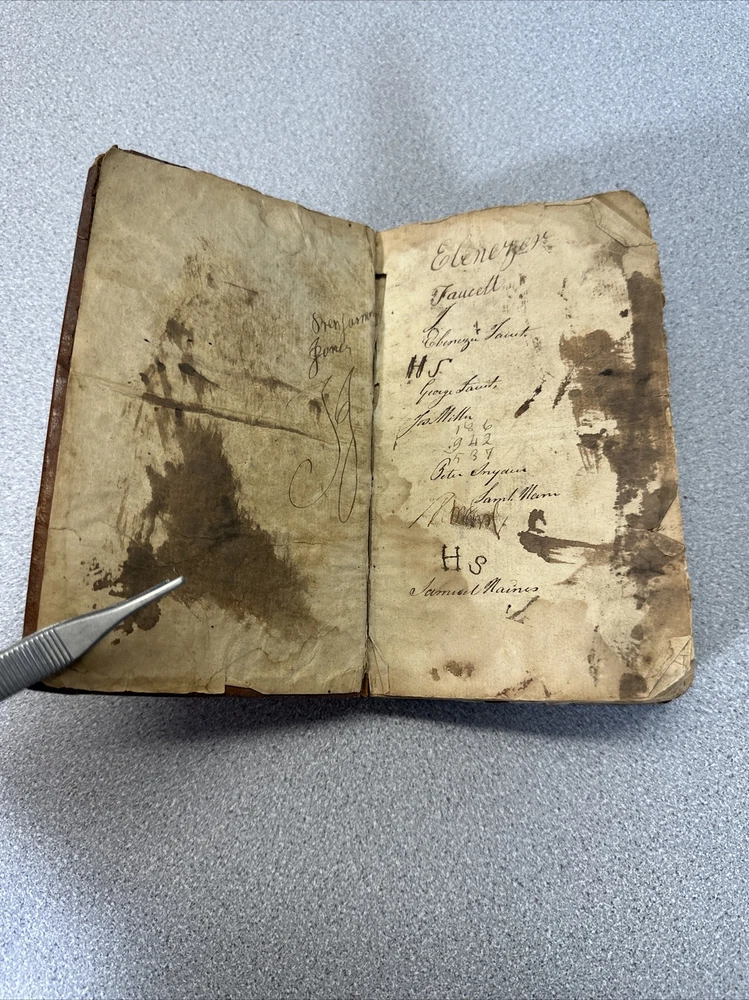 Benjamin
Jones
Ebenezer
Faucett
Ebenezer Faucit
HS
George Faucit
Jos Miller
186
942
537
Peter Snyder
Saml. Haines
HS
Samuel Haines